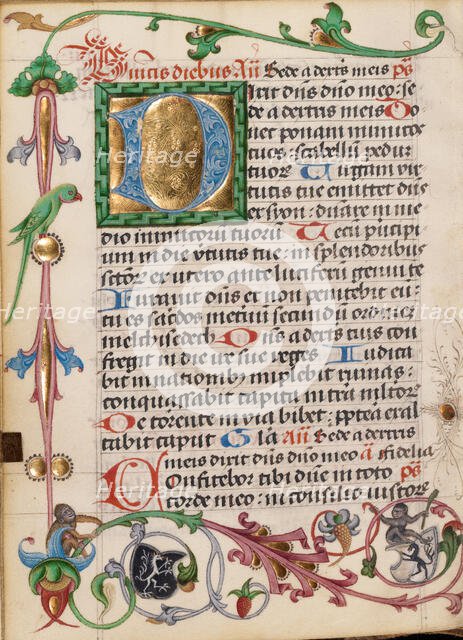 diebus Añ Sede a dextris meis ps
Dixit dñs dño meo: se
de a dextris meis Do
nec ponam inimicos
tuos: scabellū pedum
tuorū Uirgam vir
tutis tue emittet dñs
ex syon: dñare in me
dio inimicorū tuorū Tecū pricipi
um in die v̄tutis tue: in splendoribus
sctōrū ex utero ante luciferū genui te
Iurauit dñs et non penitebit eū:
tu es sacdos in etnū secundū ordinē
melchisedech Dñs a dextris tuis con
fregit in die ire sue reges Iudica
bit in nationibus implebit ruinas:
conquassabit capita in trā mltōrū
De torrente in via bibet: pptea exal
tabit caput Glā Añ Sede a dextris
meis dixit dñs dño meo añ fidelia
Confitebor tibi dñe in toto ps
corde meo: in consilio iustorū
Heritage
Heritage
Heritage
Heritage
Heritage
Heritage
Heritage
Heritage
Heritage